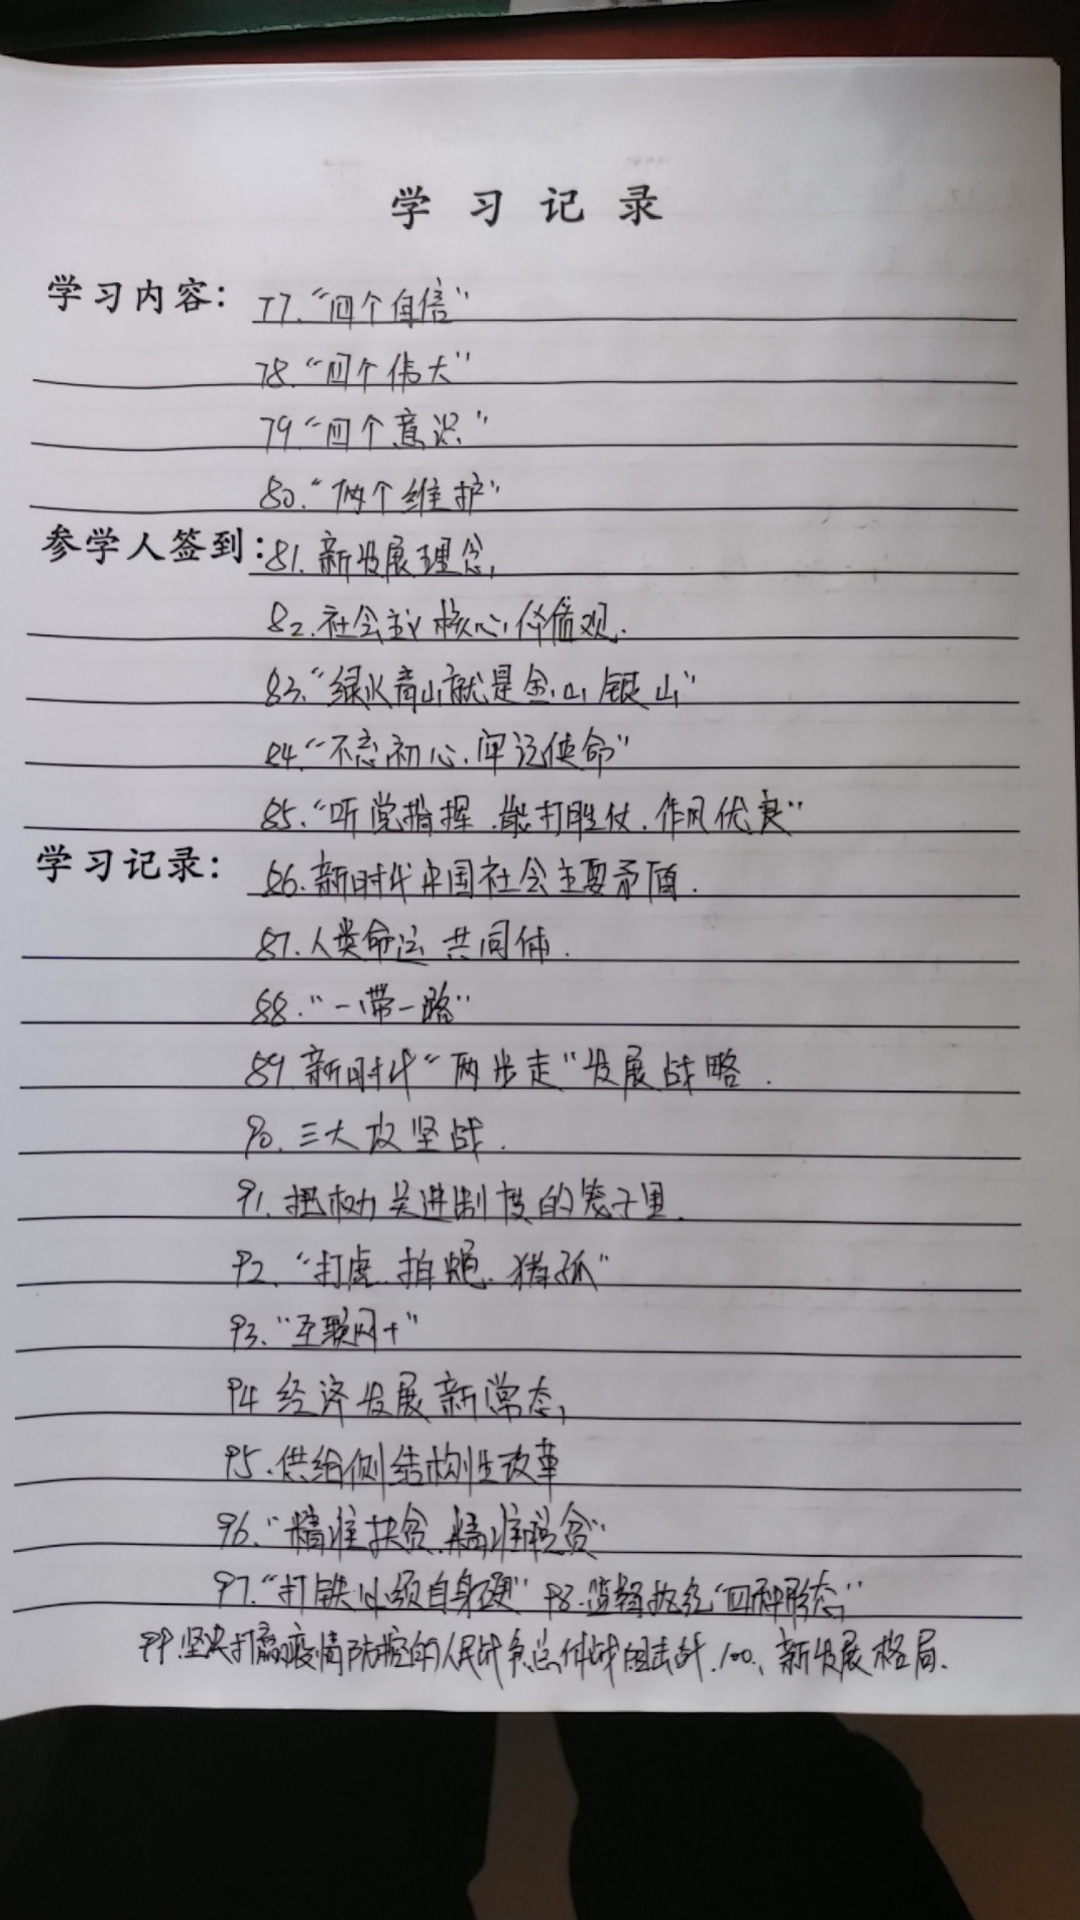 学习记录
学习内容: 77.“四个自信”
78.“四个伟大”
79“四个意识”
80.“两个维护”
参学人签到: 81.新发展理念,
82.社会主义核心价值观.
83.“绿水青山就是金山银山”
84.“不忘初心.牢记使命”
85.“听党指挥.能打胜仗.作风优良”
学习记录: 86.新时代中国社会主要矛盾.
87.人类命运共同体.
88.“一带一路”
89新时代“两步走”发展战略.
90.三大攻坚战.
91.把权力关进制度的笼子里.
92.“打虎.拍蝇.猎狐”
93.“互联网+”
94经济发展新常态,
95.供给侧结构性改革
96.“精准扶贫.精准脱贫”
97.“打铁必须自身硬” 98.监督执纪“四种形态”
99.坚决打赢疫情防控的人民战争总体战阻击战.100.新发展格局.